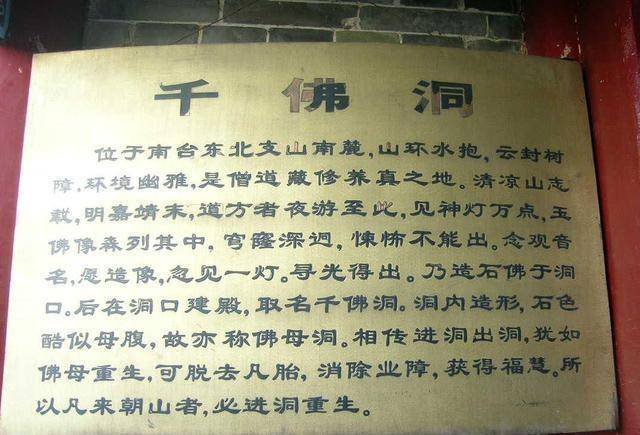 千佛洞
位于南台东北支山南麓,山环水抱,云封树
障,环境幽雅,是僧道藏修养真之地。清凉山志
载,明嘉靖末,道方者夜游至此,见神灯万点,玉
佛像森列其中,穹窿深迥,悚怖不能出。念观音
名,愿造像,忽见一灯。寻光得出。乃造石佛于洞
口。后在洞口建殿,取名千佛洞。洞内造形,石色
酷似母腹,故亦称佛母洞。相传进洞出洞,犹如
佛母重生,可脱去凡胎,消除业障,获得福慧。所
以凡来朝山者,必进洞重生。